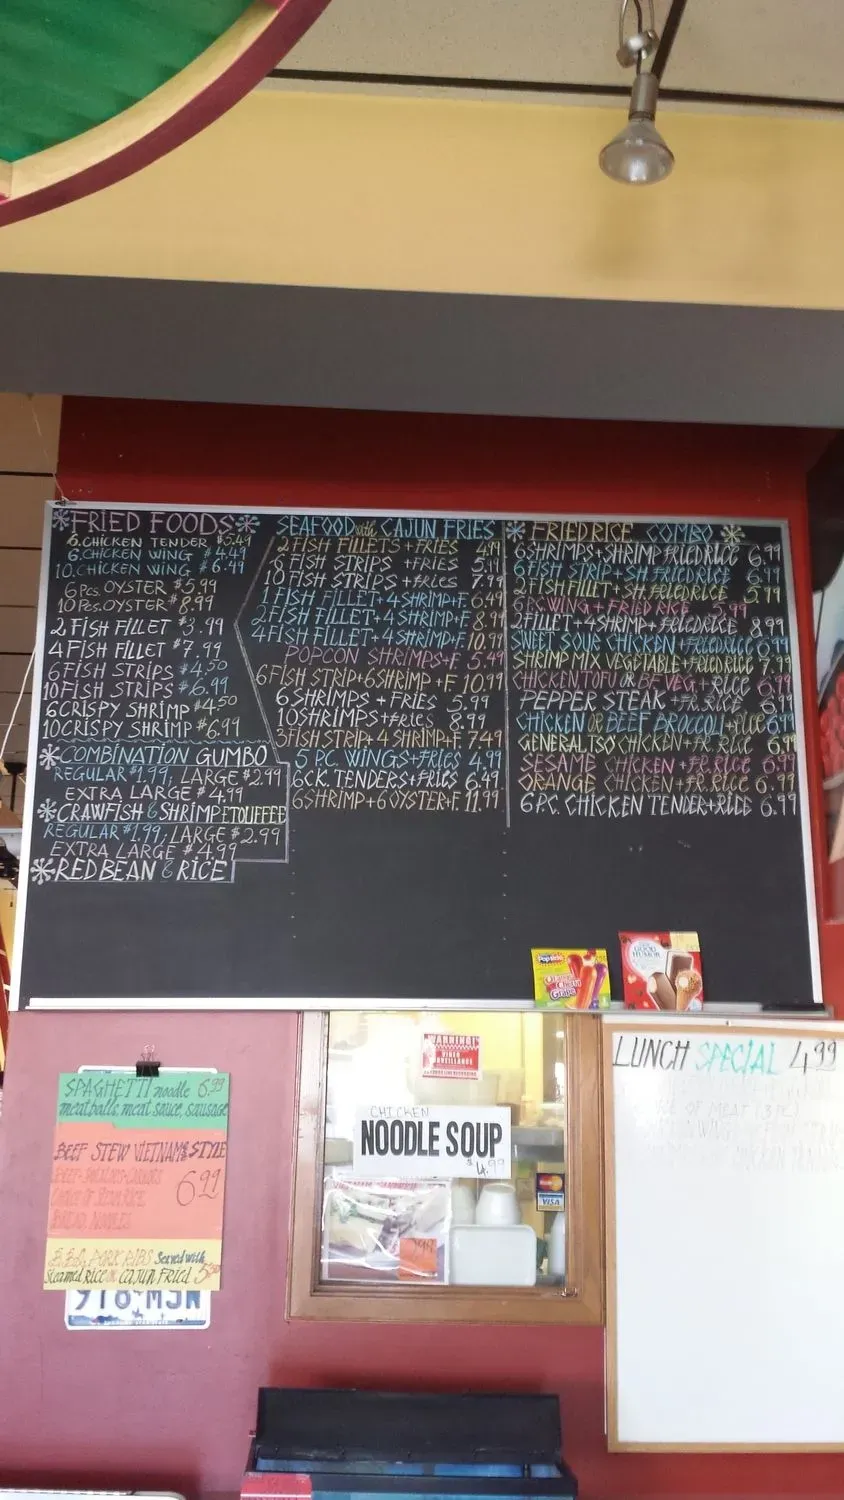 FRIED FOODS
6. CHICKEN TENDER $5.49
6. CHICKEN WING $4.49
10. CHICKEN WING $6.49
6 Pcs. OYSTER $5.99
10 Pcs. OYSTER $8.99
2 FISH FILLET $3.99
4 FISH FILLET $7.99
6 FISH STRIPS $4.50
10 FISH STRIPS $6.99
6 CRISPY SHRIMP $4.50
10 CRISPY SHRIMP $6.99
COMBINATION GUMBO
REGULAR $1.99, LARGE $2.99
EXTRA LARGE $4.99
CRAWFISH & SHRIMP ETOUFFEE
REGULAR $1.99, LARGE $2.99
EXTRA LARGE $4.99
RED BEAN & RICE
SEAFOOD with CAJUN FRIES
2 FISH FILLETS + FRIES 4.99
6 FISH STRIPS + FRIES 5.49
10 FISH STRIPS + FRIES 7.99
1 FISH FILLET + 4 SHRIMP + F. 6.49
2 FISH FILLET + 4 SHRIMP + F 8.99
4 FISH FILLET + 4 SHRIMP + F 10.99
POPCON SHRIMPS + F. 5.49
6 FISH STRIP + 6 SHRIMP + F 10.99
6 SHRIMPS + FRIES 5.99
10 SHRIMPS + FRIES 8.99
3 FISH STRIP + 4 SHRIMP + F. 7.49
5 PC WINGS + FRIES 4.99
6 CK. TENDERS + FRIES 6.49
6 SHRIMP + 6 OYSTER + F. 11.99
FRIED RICE COMBO
6 SHRIMPS + SHRIMP FRIED RICE 6.99
6 FISH STRIP + SH. FRIED RICE 6.99
2 FISH FILLET + SH. FRIED RICE 5.99
6 PC WING + FRIED RICE 5.99
2 FILLET + 4 SHRIMP + FRIED RICE 8.99
SWEET SOUR CHICKEN + FRIED RICE 6.99
SHRIMP MIX VEGETABLE + FRIED RICE 7.99
CHICKEN TOFU OR BF VEG + RICE 6.99
PEPPER STEAK + FR. RICE 6.99
CHICKEN OR BEEF BROCCOLI + RICE 6.99
GENERAL TSO CHICKEN + FR. RICE 6.99
SESAME CHICKEN + FR. RICE 6.99
ORANGE CHICKEN + FR. RICE 6.99
6 PC. CHICKEN TENDER + RICE 6.99
Popsicle
Orange Cherry Grape
GOOD HUMOR
SPAGHETTI noodle 6.99
meatballs meat sauce, sausage
BEEF STEW VIETNAMS STYLE
6.99
B.B.Q. PORK RIBS Served with
Steamed Rice or CAJUN FRIED 5.50
978 MJN
WARNING!
VIDEO
SURVEILLANCE
CHICKEN
NOODLE SOUP
$4.99
MasterCard
VISA
LUNCH SPECIAL 4.99